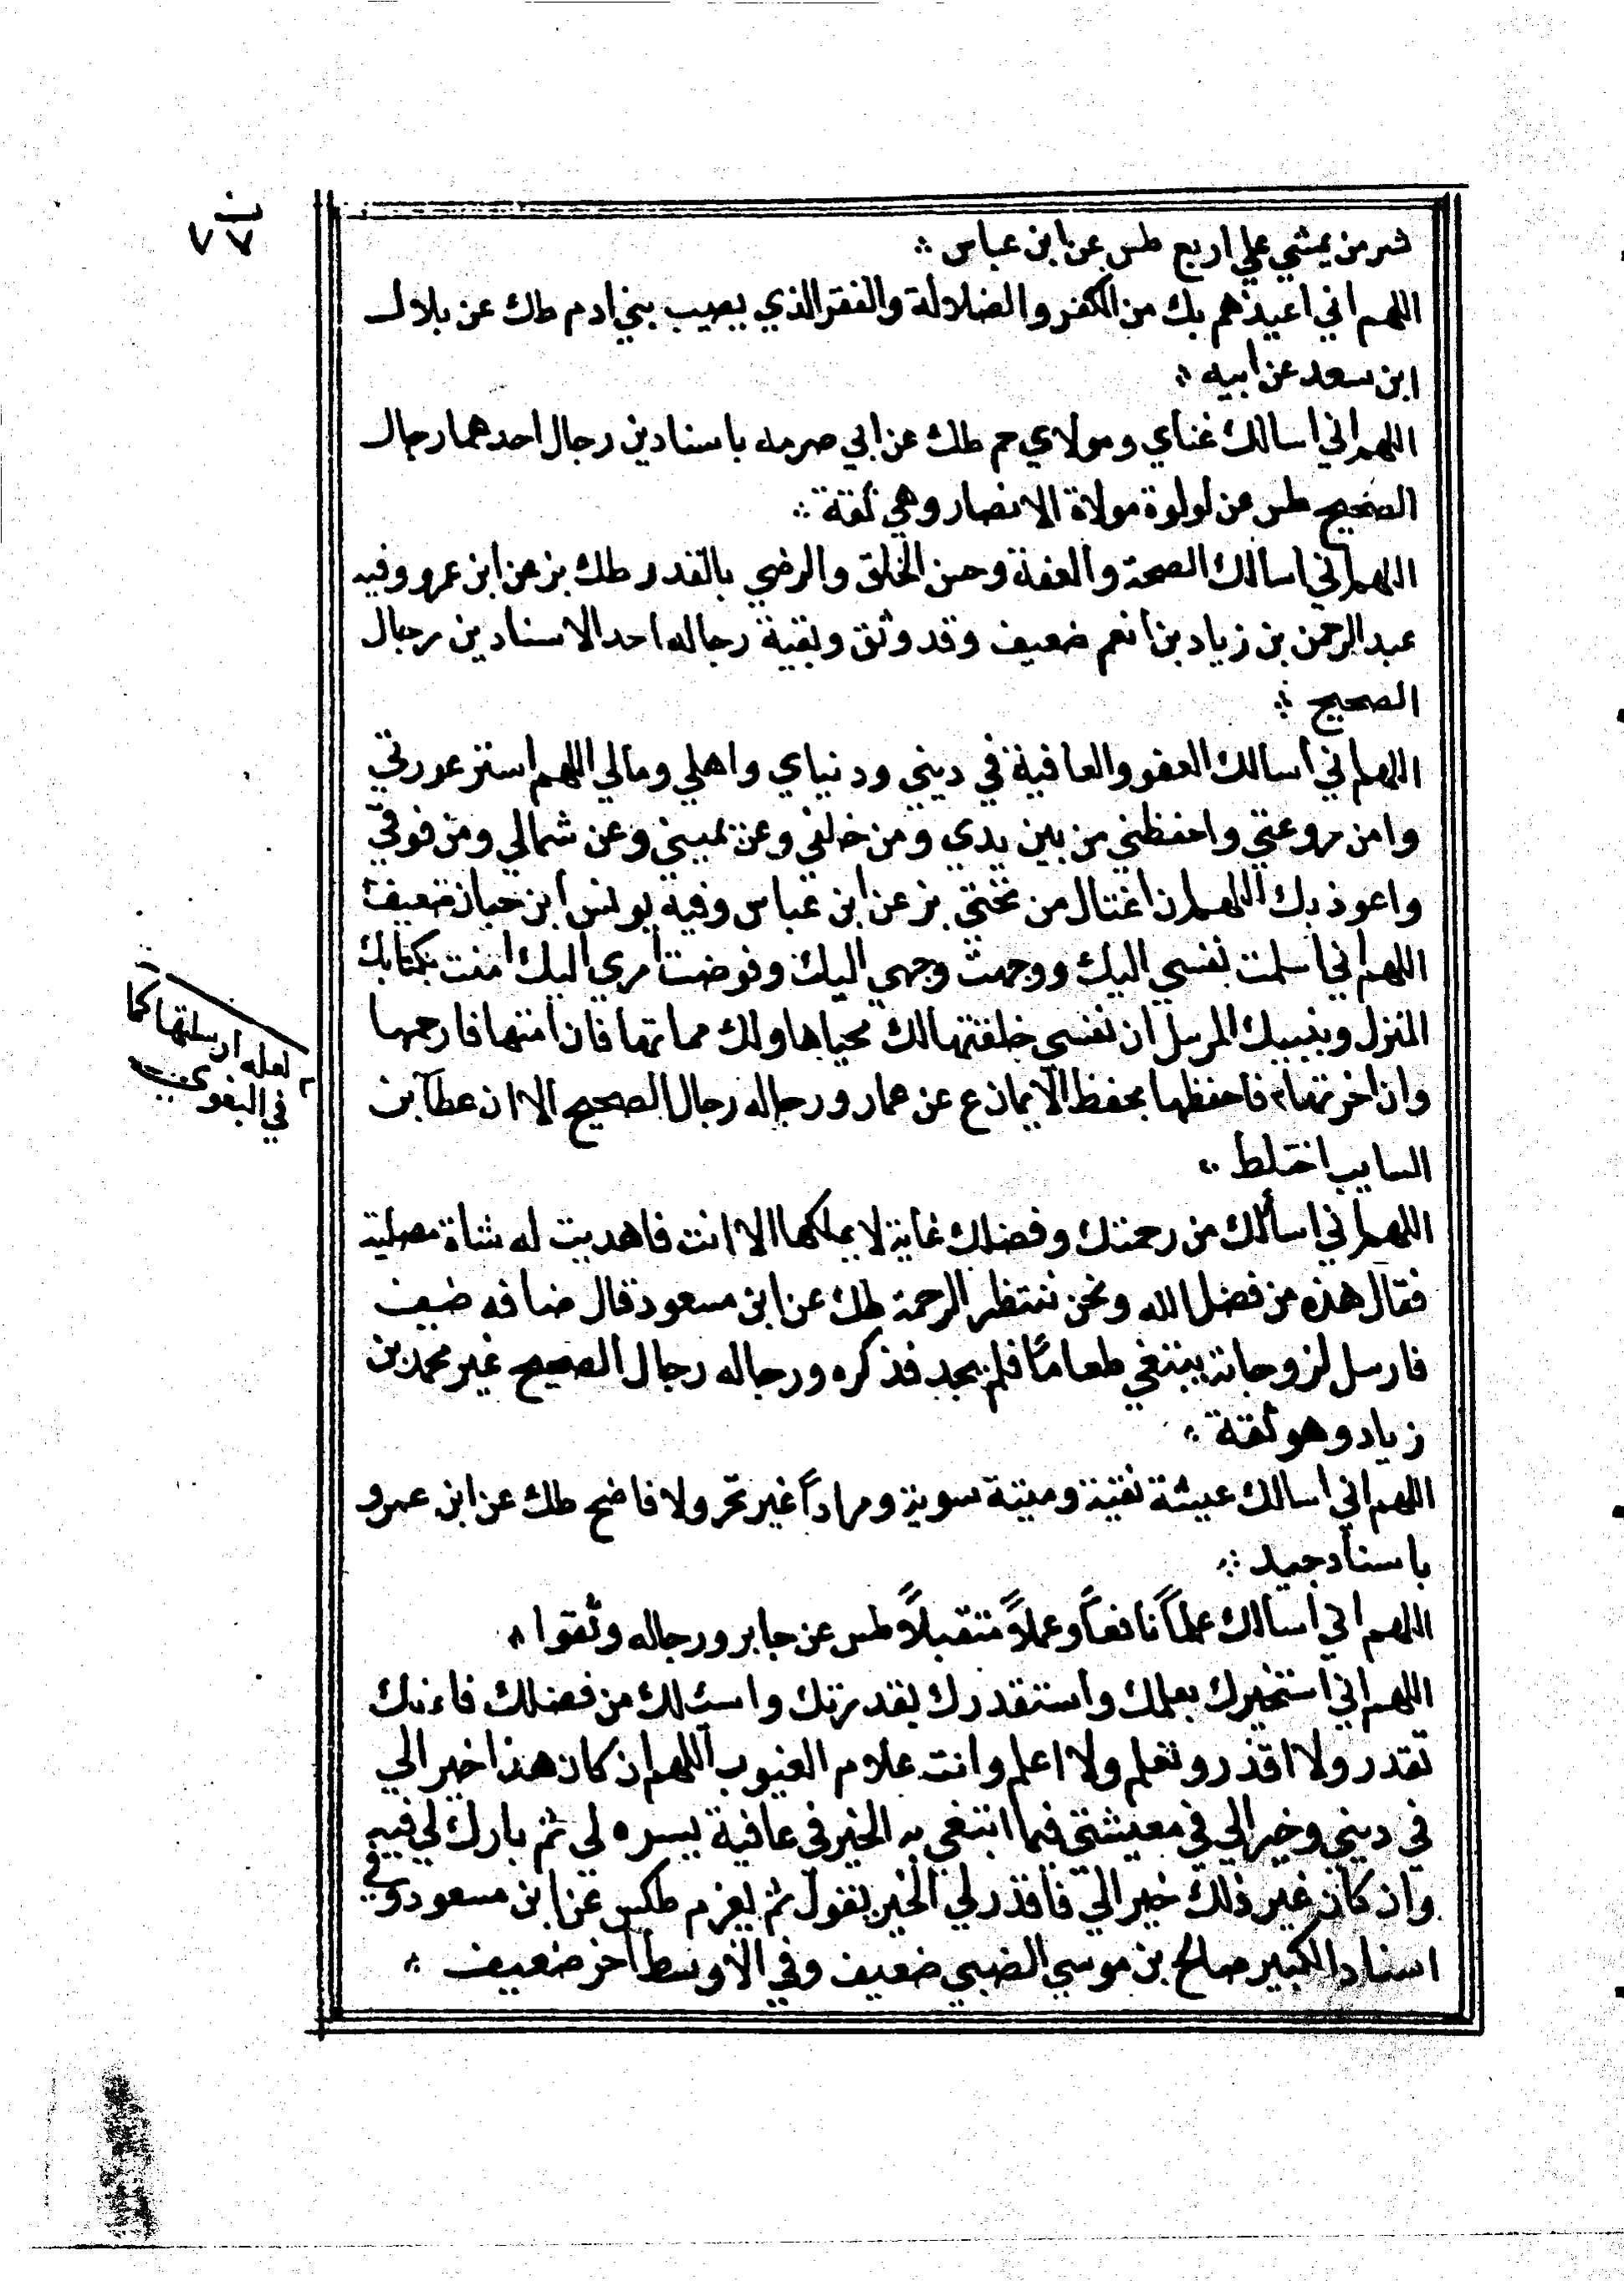 ٧٧
شر من يمشي علي اربع طس عن ابن عباس
اللهم اني اعيذهم بك من الكفر والضلالة والفقر الذي يصيب بني ادم طك عن بلال
ابن سعد عن ابيه
اللهم اني اسالك غناي ومولاي حم طك عن ابي صرمه باسنادين رجال احدهما رجال
الصحيح طس عن لولوة مولاة الانصار وهي ثقة
اللهم اني اسالك الصحة والعفة وحسن الخلق والرضي بالقدر طك بز عن ابن عمرو وفيه
عبد الرحمن بن زياد بن انعم ضعيف وقد وثق وبقية رجاله احد الاسنادين رجال
الصحيح
اللهم اني اسالك العفو والعافية في ديني ودنياي واهلي ومالي اللهم استر عورتي
وامن روعتي واحفظني من بين يدي ومن خلفي وعن يميني وعن شمالي ومن فوقي
واعوذ بك اللهم ان اغتال من تحتي بز عن ابن عباس وفيه يونس ابن خباز ضعيف
اللهم اني اسلمت نفسي اليك ووجهت وجهي اليك وفوضت امري اليك امنت بكتابك
المنزل وبنبيك المرسل ان نفسي خلقتها لك محياها ولك مماتها فان امتها فارحمها
وان اخرتها م فاحفظها بحفظ الايمان ع عن عمار ورجاله رجال الصحيح الا ان عطآ بن
السايب اختلط
اللهم اني اسألك من رحمتك وفضلك غاية لا يملكها الا انت فاهديت له شاة مصلية
فقال هذه من فضل الله ونحن ننتظر الرحمة طك عن ابن مسعود قال ضافه ضيف
فارسل لزوجاته يبتغي طعامًا فلم يجد فذكره ورجاله رجال الصحيح غير محمد بن
زياد وهو ثقة
اللهم اني اسالك عيشة نقية وميتة سوية ومرادًا غير مخز ولا فاضح طك عن ابن عمرو
باسناد جيد
اللهم اني اسالك علمًا نافعًا وعملًا متقبلًا طس عن جابر ورجاله وثقوا
اللهم اني استخيرك بعلمك واستقدرك بقدرتك واسئلك من فضلك فاءنك
تقدر ولا اقدر وتعلم ولا اعلم وانت علام الغيوب اللهم ان كان هذا خير الي
في ديني وخير الي في معيشتي فيما ابتغي به الخير في عافية يسره لي ثم بارك لي فيه
وان كان غير ذلك خير الي فاقدر لي الخير يقول ثم يعزم طكس عن ابن مسعود وفي
اسناد الكبير صالح بن موسي الضبي ضعيف وفي الاوسط اخر ضعيف
م لعله ارسلتها كما
في البغوي